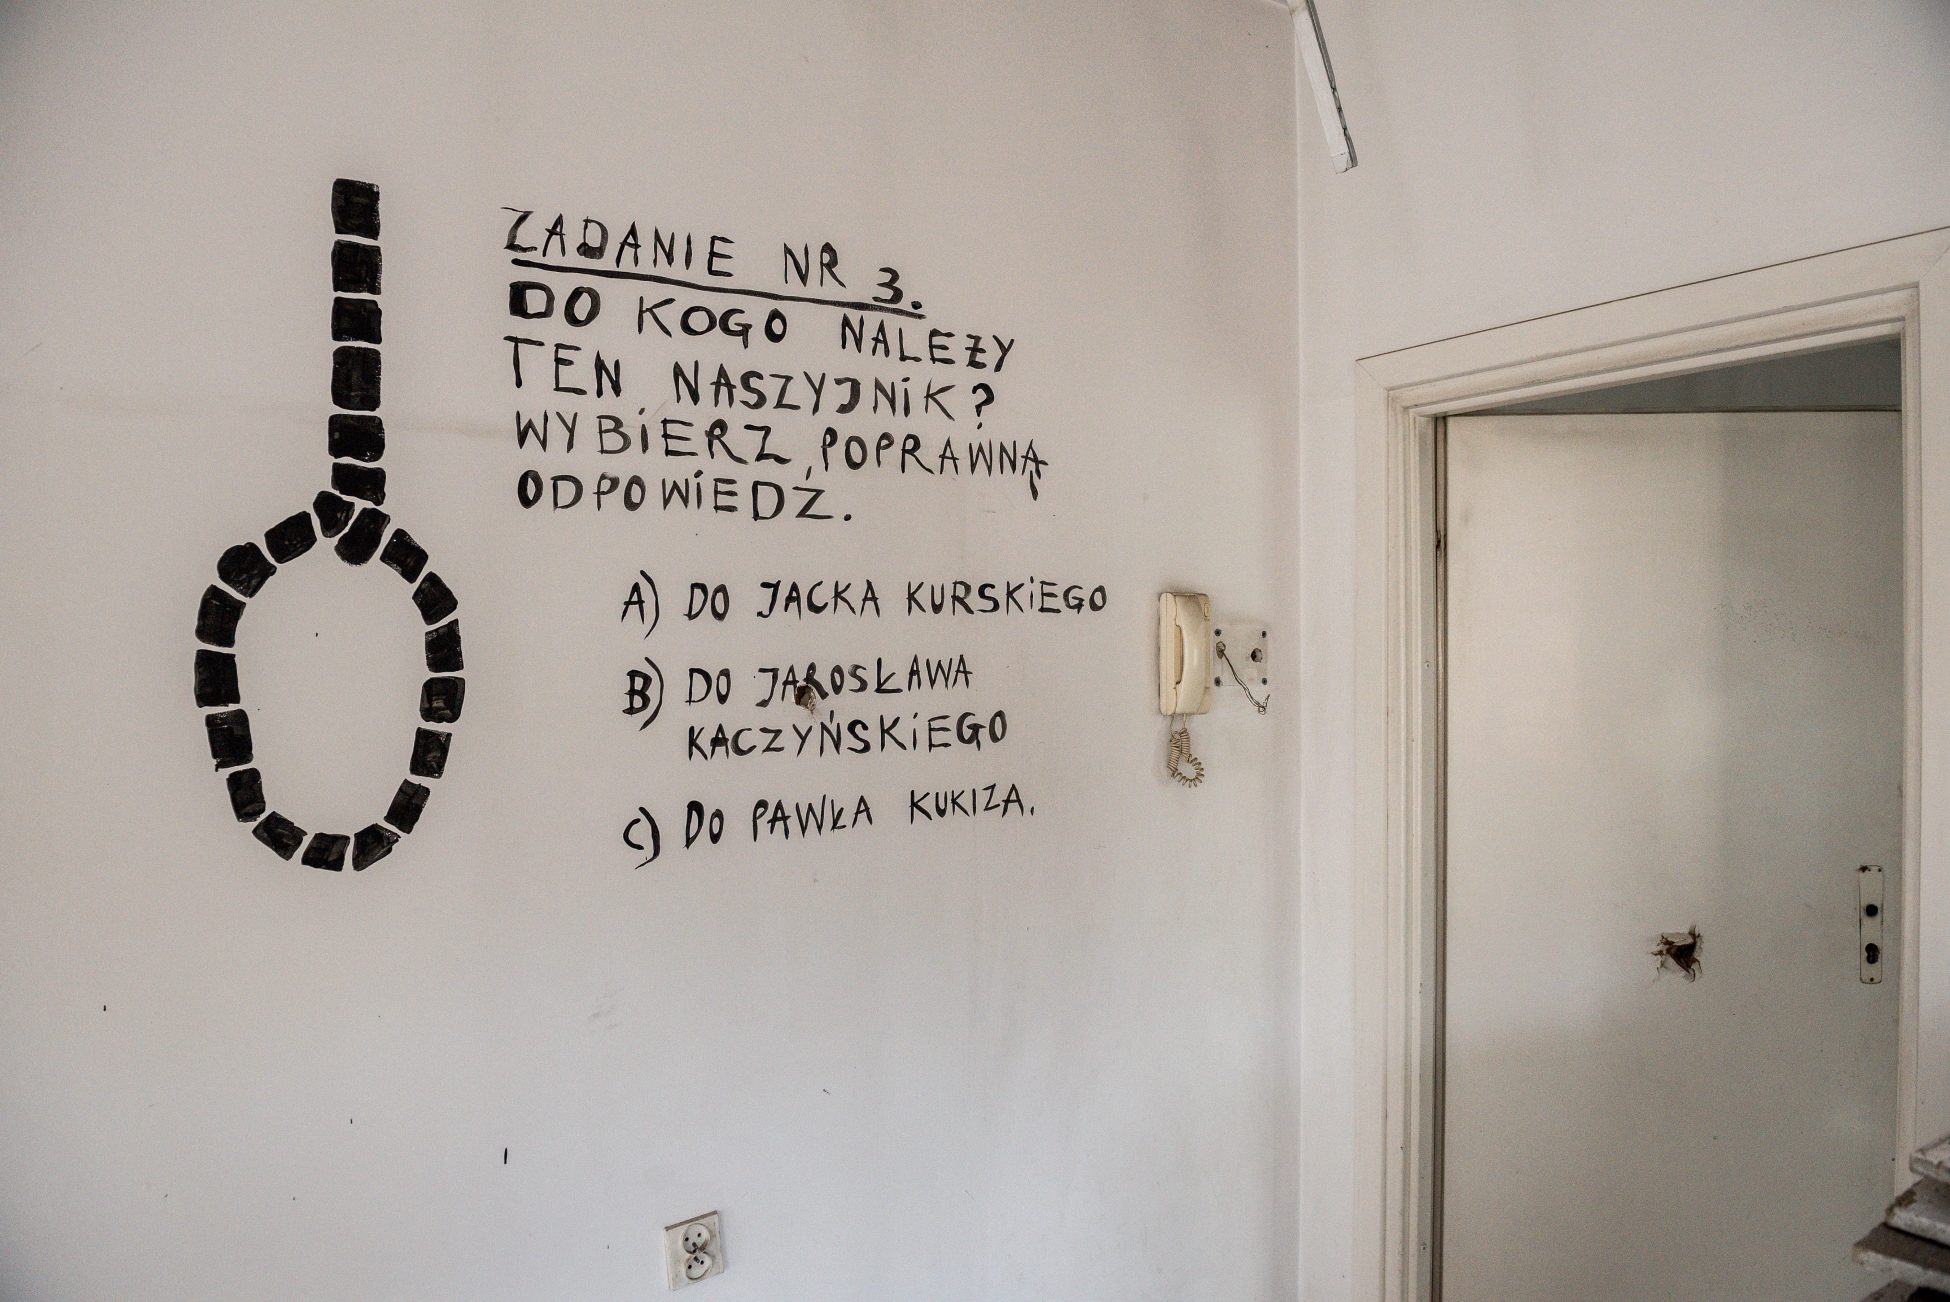 ZADANIE NR 3.
DO KOGO NALEŻY
TEN NASZYJNIK?
WYBIERZ POPRAWNĄ
ODPOWIEDŹ.
A) DO JACKA KURSKIEGO
B) DO JAROSŁAWA
KACZYŃSKIEGO
C) DO PAWŁA KUKIZA.